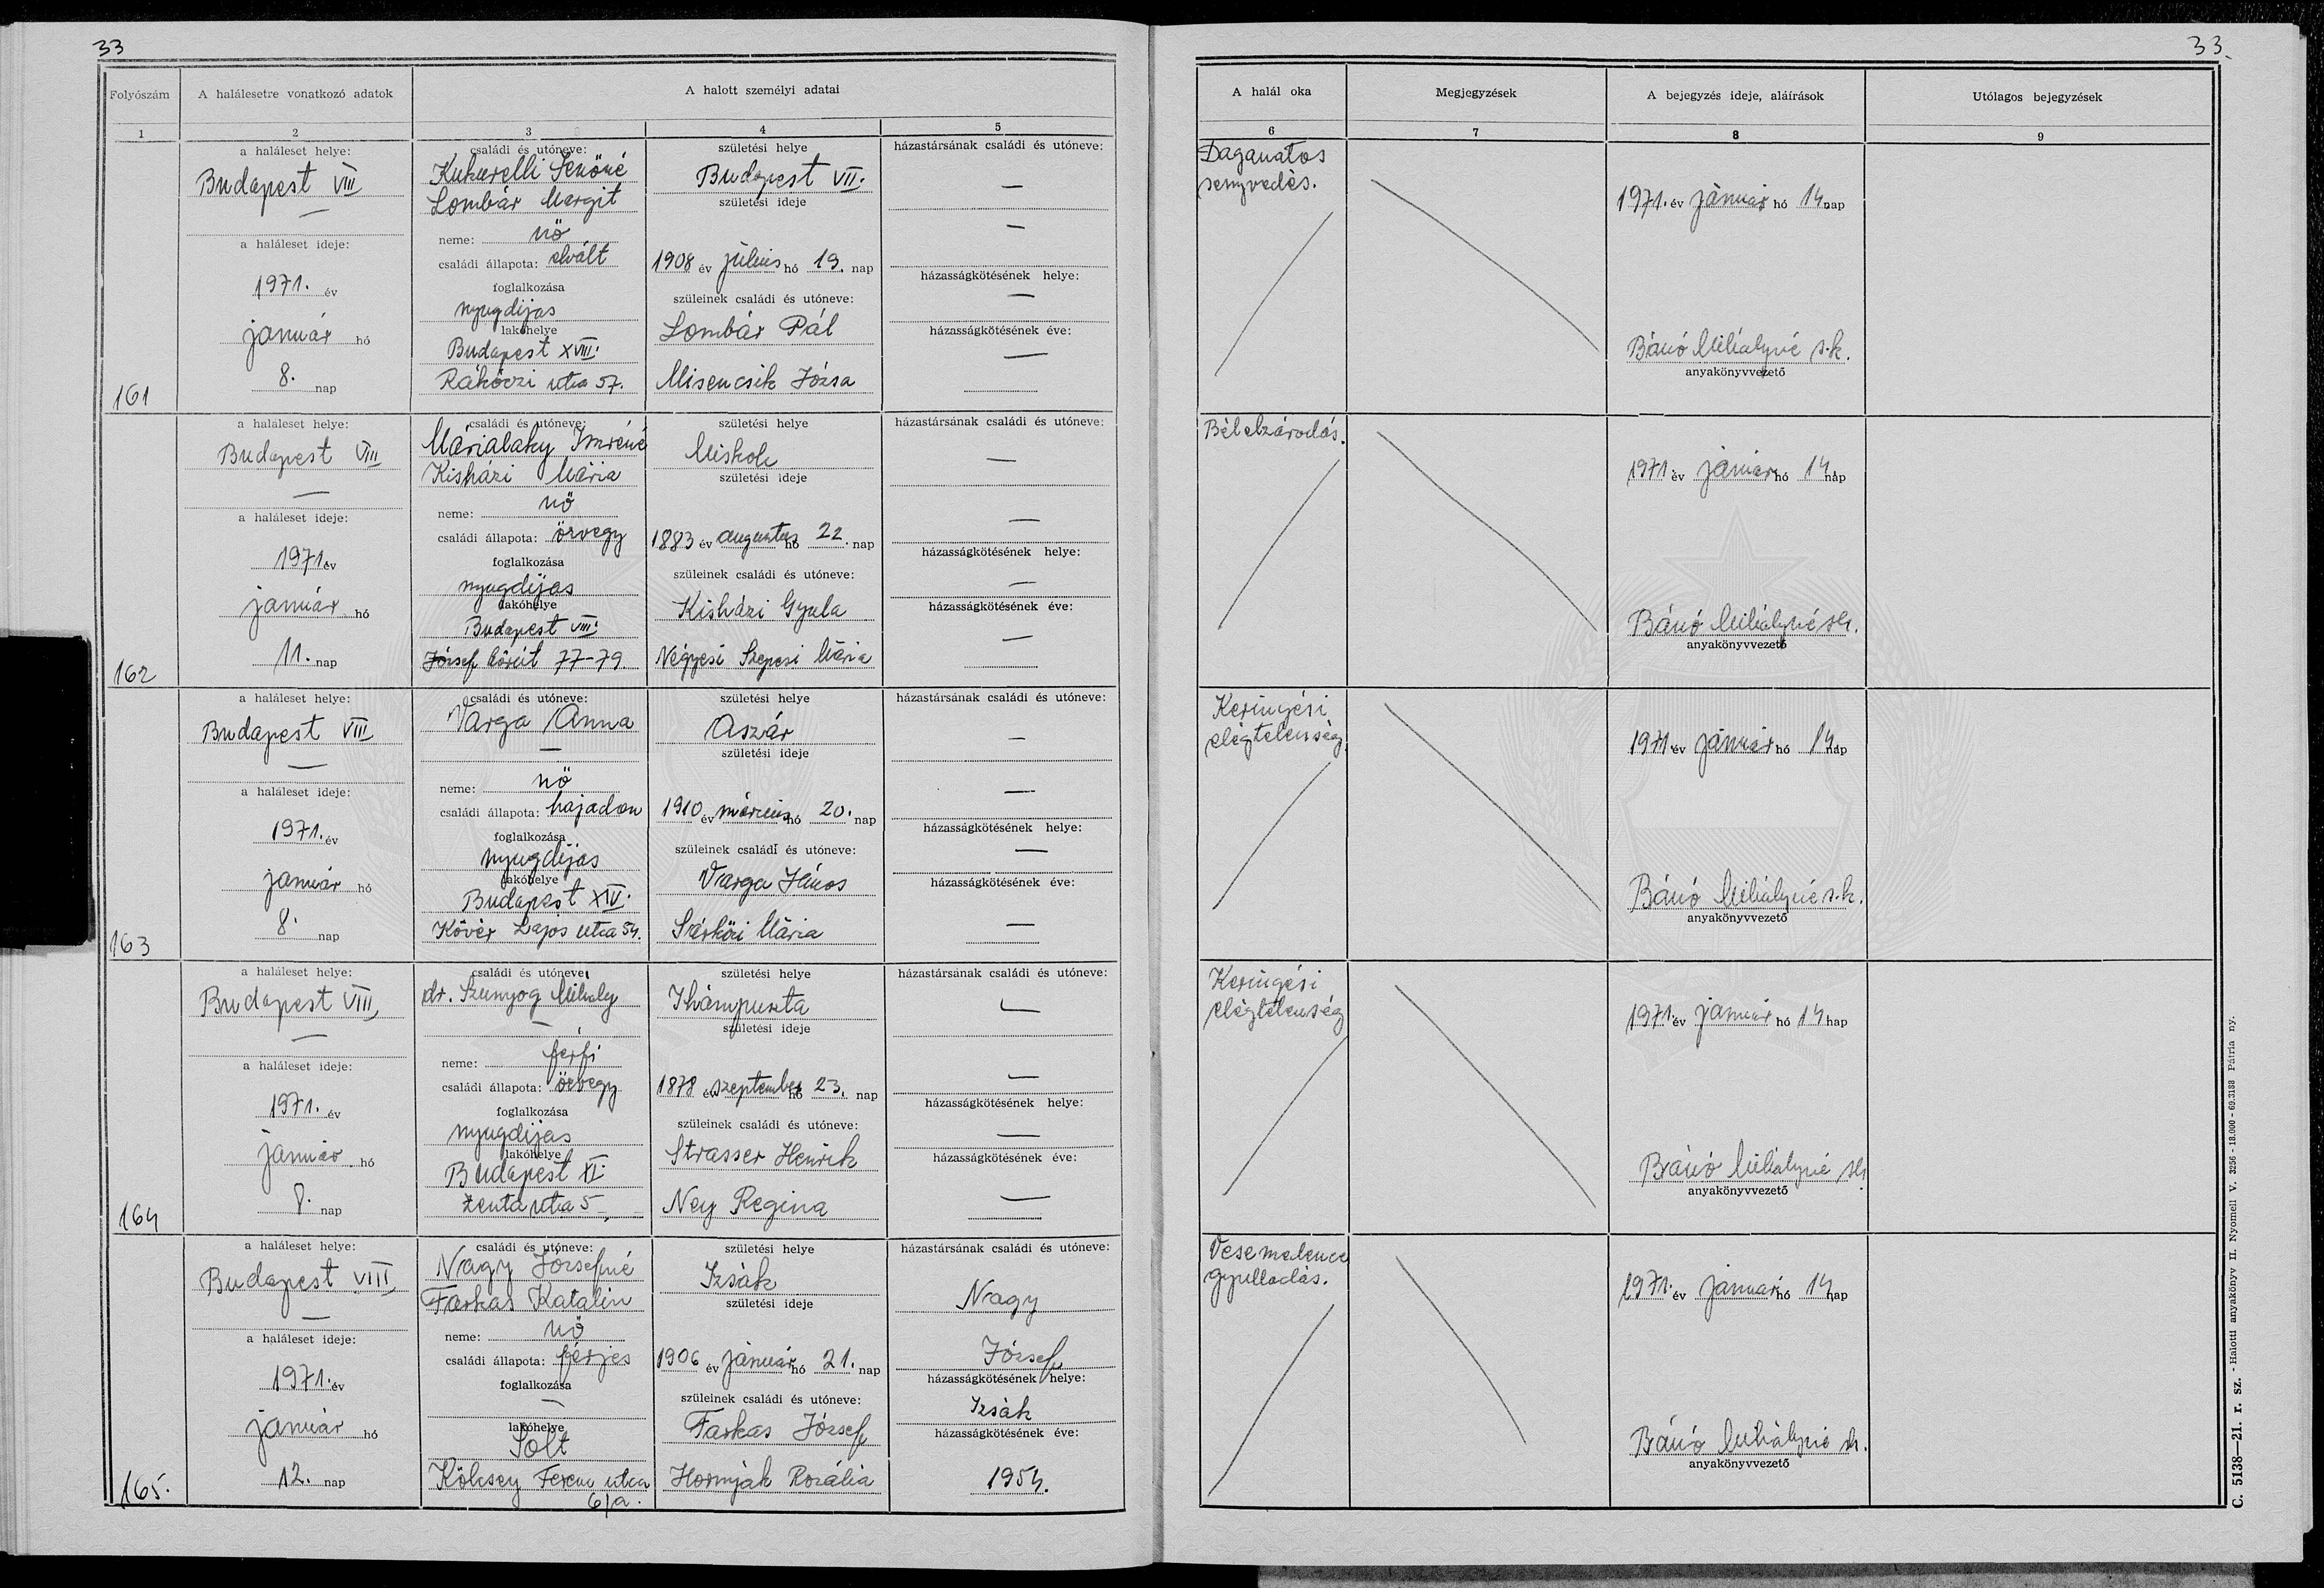 33
33.
Folyószám
A halálesetre vonatkozó adatok
A halott személyi adatai
1
2
3
4
5
a haláleset helye:
Budapest VIII
—
a haláleset ideje:
1971. év
január hó
8. nap
161
családi és utóneve:
Kukurelli Jenőné
Lombár Margit
neme: nő
családi állapota: elvált
foglalkozása
nyugdíjas
lakóhelye
Budapest XVIII.
Rákóczi utca 57.
születési helye
Budapest VII.
születési ideje
1908 év július hó 19. nap
szüleinek családi és utóneve:
Lombár Pál
Misencsik Józsa
házastársának családi és utóneve:
—
—
házasságkötésének helye:
—
házasságkötésének éve:
—
a haláleset helye:
Budapest VIII
—
a haláleset ideje:
1971 év
január hó
11. nap
162
családi és utóneve:
Márialaky Imréné
Kisházi Mária
neme: nő
családi állapota: özvegy
foglalkozása
nyugdíjas
lakóhelye
Budapest VIII.
József körút 77-79
születési helye
Miskolc
születési ideje
1883 év augusztus hó 22. nap
szüleinek családi és utóneve:
Kisházi Gyula
Négyesi Szepesi Mária
házastársának családi és utóneve:
—
—
házasságkötésének helye:
—
házasságkötésének éve:
—
a haláleset helye:
Budapest VIII
—
a haláleset ideje:
1971. év
január hó
8. nap
163
családi és utóneve:
Varga Anna
—
neme: nő
családi állapota: hajadon
foglalkozása
nyugdíjas
lakóhelye
Budapest XIV.
Kövér Lajos utca 54.
születési helye
Aszár
születési ideje
1910 év március hó 20. nap
szüleinek családi és utóneve:
Varga János
Sárközi Mária
házastársának családi és utóneve:
—
—
házasságkötésének helye:
—
házasságkötésének éve:
—
a haláleset helye:
Budapest VIII
—
a haláleset ideje:
1971. év
január hó
8. nap
164
családi és utóneve:
dr. Szunyog Mihály
—
neme: férfi
családi állapota: özvegy
foglalkozása
nyugdíjas
lakóhelye
Budapest XI.
Zenta utca 5
születési helye
Ihánypuszta
születési ideje
1878 év szeptember hó 23. nap
szüleinek családi és utóneve:
Strasser Henrik
Ney Regina
házastársának családi és utóneve:
—
—
házasságkötésének helye:
—
házasságkötésének éve:
—
a haláleset helye:
Budapest VIII
—
a haláleset ideje:
1971. év
január hó
12. nap
165.
családi és utóneve:
Nagy Józsefné
Farkas Katalin
neme: nő
családi állapota: férjes
foglalkozása
—
lakóhelye
Solt
Kölcsey Ferenc utca
6/a.
születési helye
Izsák
születési ideje
1906 év január hó 21. nap
szüleinek családi és utóneve:
Farkas József
Hornyák Rozália
házastársának családi és utóneve:
Nagy
József
házasságkötésének helye:
Izsák
házasságkötésének éve:
1954.
A halál oka
Megjegyzések
A bejegyzés ideje, aláírások
Utólagos bejegyzések
6
7
8
9
Daganatos
senyvedés.
1971. év január hó 14 nap
Bánó Mihályné s.k.
anyakönyvvezető
Bélelzáródás.
1971 év január hó 14 nap
Bánó Mihályné sk.
anyakönyvvezető
Keringési
elégtelenség.
1971 év január hó 14 nap
Bánó Mihályné s.k.
anyakönyvvezető
Keringési
elégtelenség
1971. év január hó 14 nap
Bánó Mihályné sk.
anyakönyvvezető
Vesemedence
gyulladás.
1971. év január hó 14 nap
Bánó Mihályné sk.
anyakönyvvezető
C. 5138—21. r. sz. - Halotti anyakönyv II. Nyomell V. 3256 - 18.000 - 69.3188 Pátria ny.